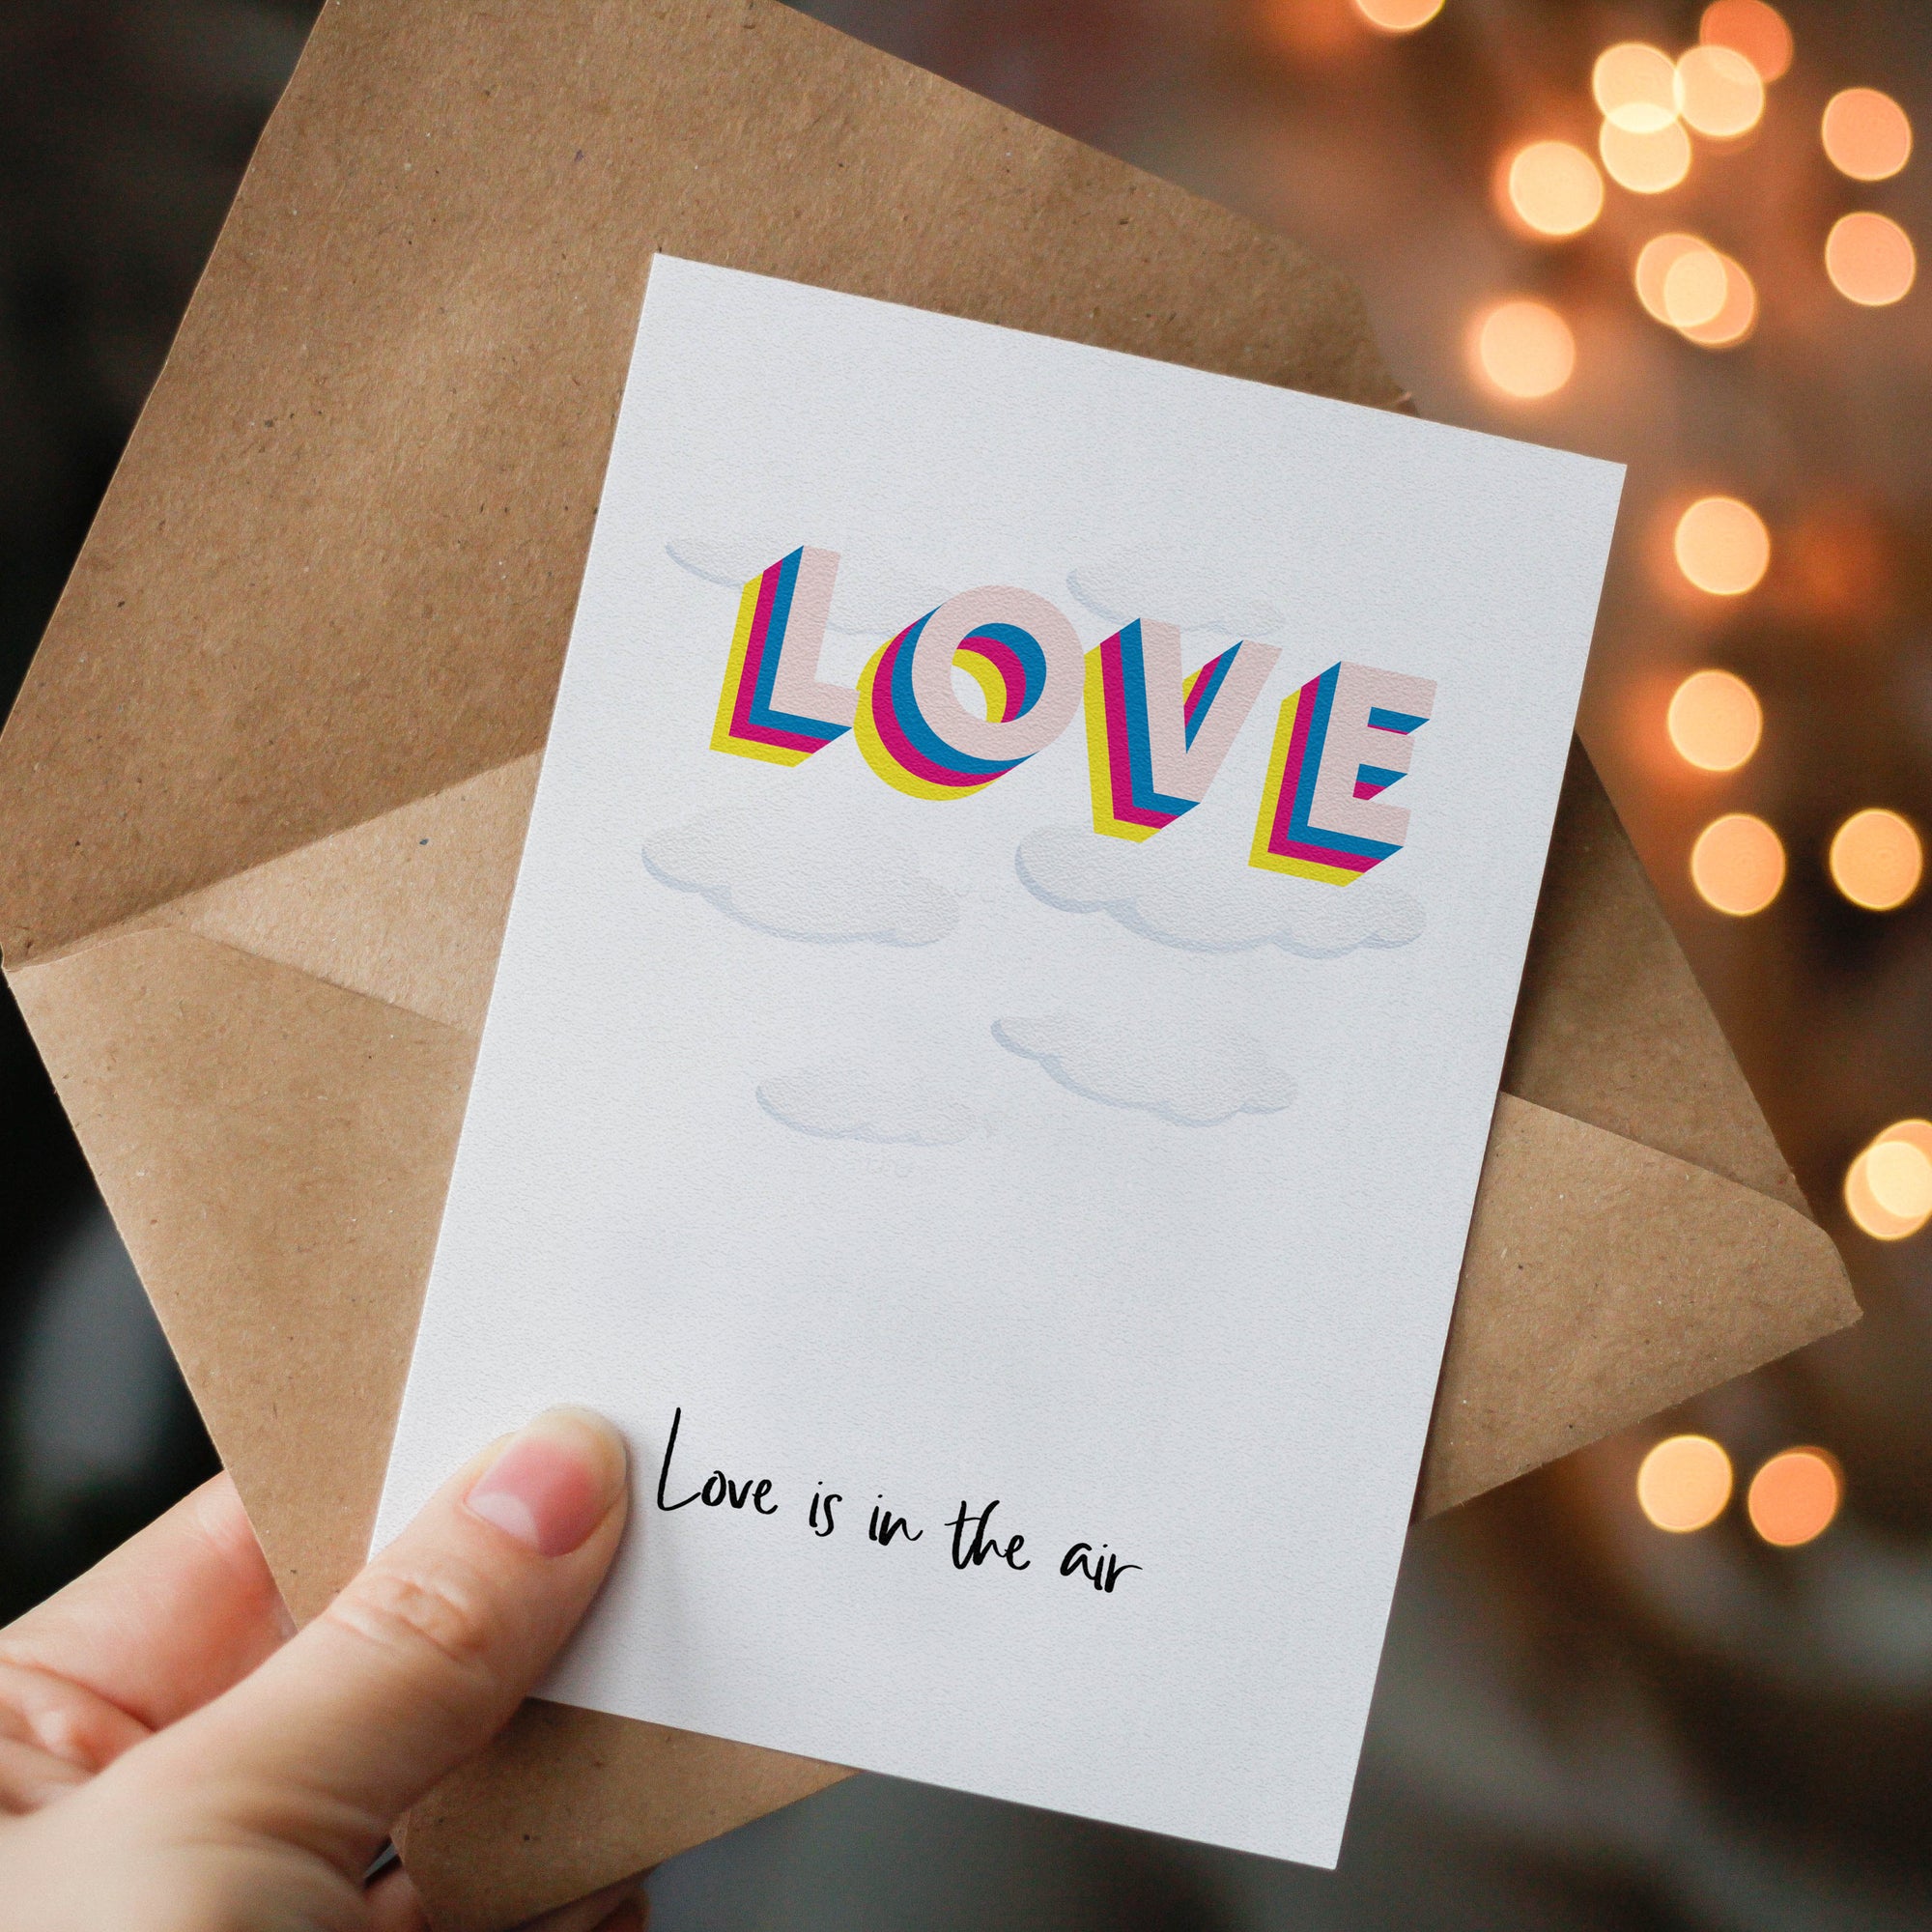 LOVE
Love is in the air